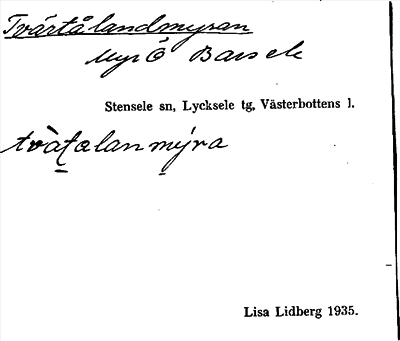 Tvärtålandmyran
Myr Ö Barsele
Stensele sn, Lycksele tg, Västerbottens l.
tvàṯalanmýra
Lisa Lidberg 1935.